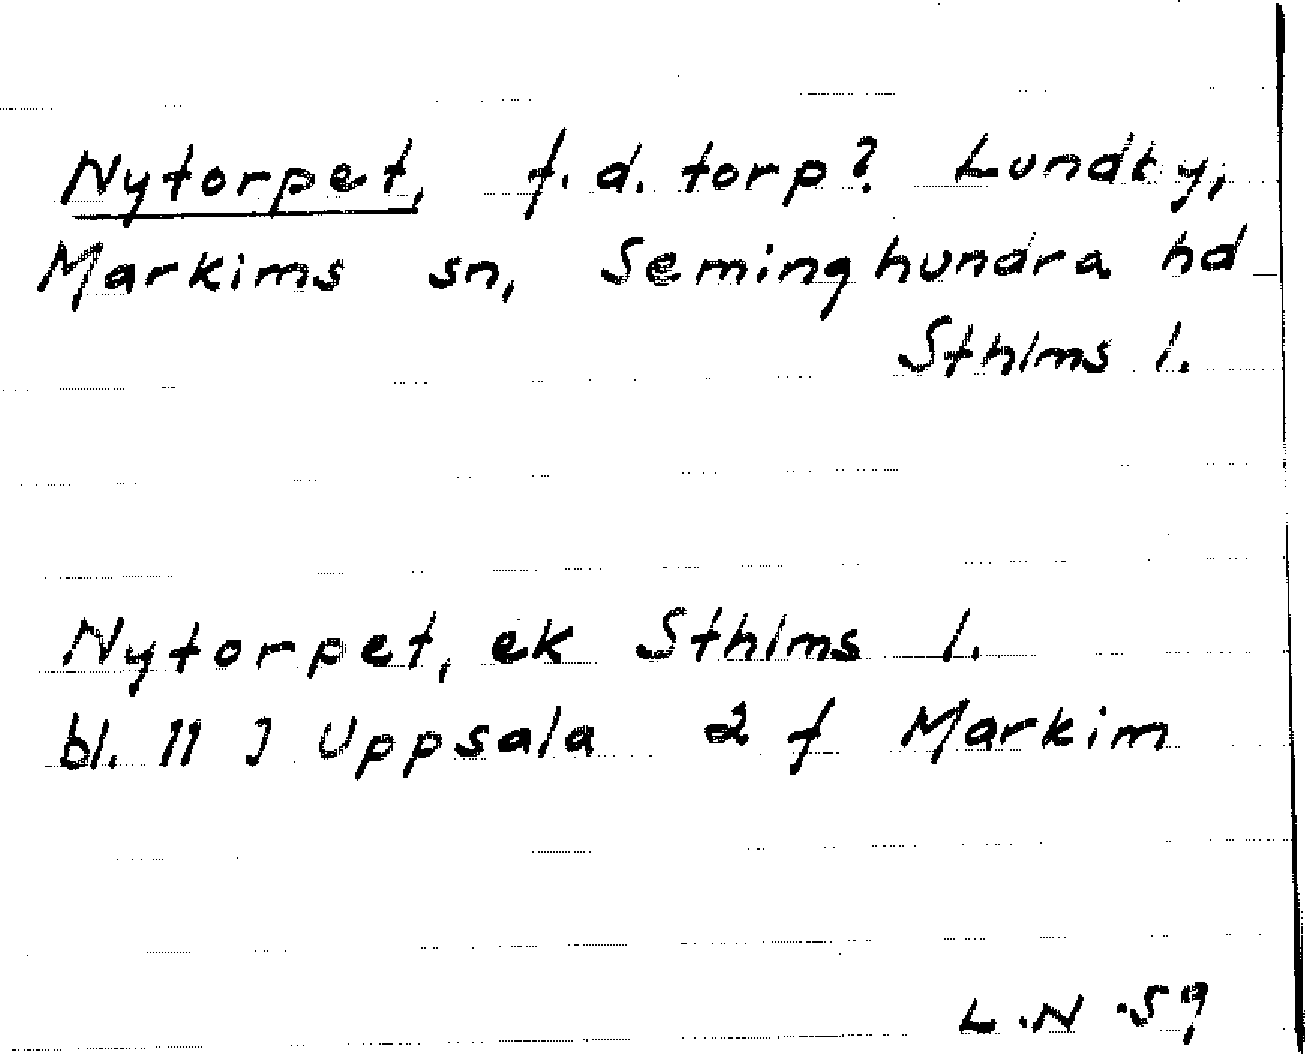 Nytorpet, f. d. torp? Lundby,
Markims sn, Seminghundra hd
Sthlms l.
Nytorpet, ek Sthlms l.
bl. 11 J Uppsala 2 f Markim
L.N.59